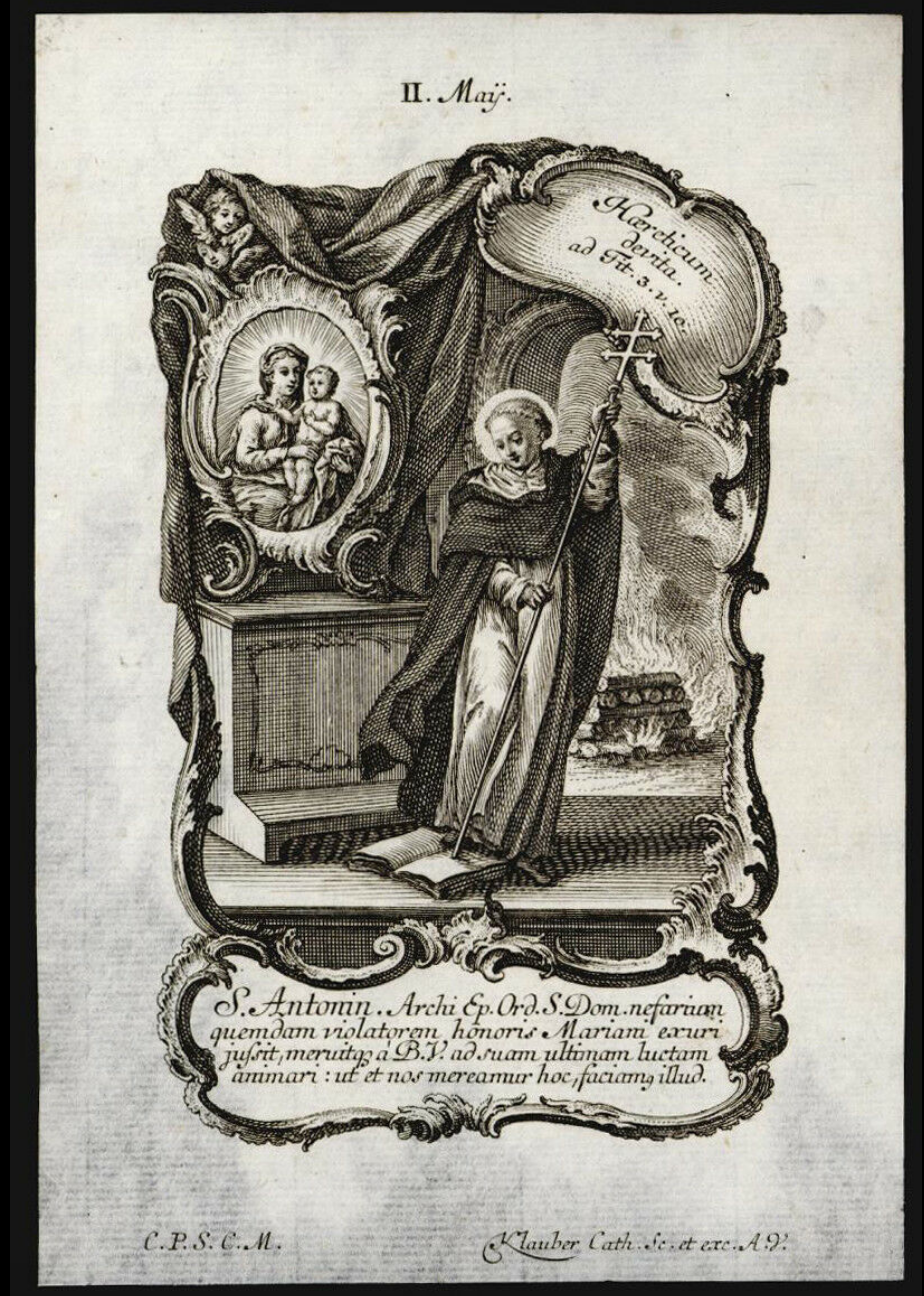 II. Maÿ.
Hæreticum
devita.
ad Tit. 3. v. 10.
S. Antonin. Archi Ep. Ord. S. Dom. nefarium
quemdam violatorem honoris Mariani exuri
jussit, meruitq₃ à B.V. ad suam ultimam luctam
animari : ut et nos mereamur hoc, faciamꝯ illud.
C. P. S. C. M.
Klauber Cath. Sc. et exc. A. V.